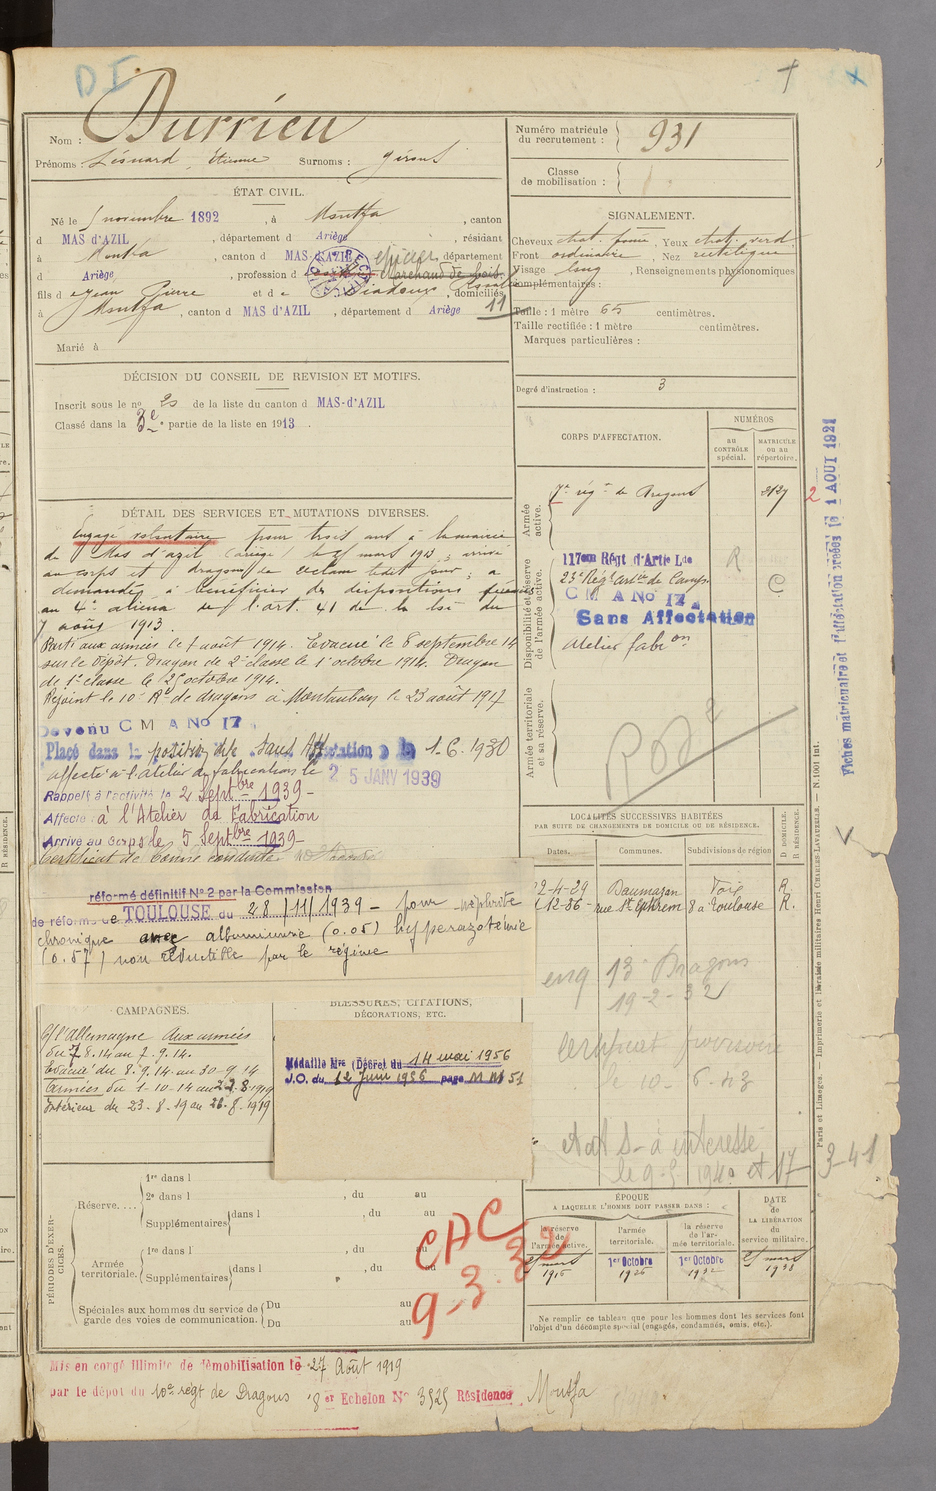 D I
Durrieu
Nom :
Prénoms : Léonard, Étienne Surnoms :
Numéro matricule du recrutement : 931
Classe de mobilisation :
ÉTAT CIVIL.
Né le 5 novembre 1892, à Montfa, canton
d MAS d'AZIL, département d Ariège, résidant
à Montfa, canton d MAS d'AZIL, département
d Ariège, profession d épicier Marchand de
fils d e Jean Pierre et d e, domiciliés
à Montfa, canton d MAS d'AZIL, département d Ariège 11
Marié à
SIGNALEMENT.
Cheveux chat. foncé, Yeux chat. verd
Front ordinaire, Nez rectiligne
Visage long, Renseignements physionomiques
complémentaires :
Taille : 1 mètre 65 centimètres.
Taille rectifiée : 1 mètre centimètres.
Marques particulières :
Degré d'instruction : 3
DÉCISION DU CONSEIL DE REVISION ET MOTIFS.
Inscrit sous le no 20 de la liste du canton d MAS-d'AZIL
Classé dans la 3e partie de la liste en 1913.
DÉTAIL DES SERVICES ET MUTATIONS DIVERSES.
Engagé volontaire pour trois ans à la mairie
de Mas d'azil (ariège) le mars 1913 ; arrivé
au corps et dragon de 2e classe ledit jour ; a
demandé à bénéficier des dispositions prévues
au 4e alinéa de l'art. 41 de la loi du
7 août 1913.
Parti aux armées le 7 août 1914. Evacué le 8 septembre 14
sur le dépôt. Dragon de 2e classe le 1 octobre 1914. Dragon
de 1e classe le 2 octobre 1914.
Rejoint le 10e Rt de dragons à Montauban le 23 août 1917
Devenu C M A No 17
Placé dans la position dite sans Affectation le 1-6-1930
affecté à l'atelier de fabrications le 25 JANV 1939
Rappelé à l'activité le 2 Septbre 1939-
Affecté à l'Atelier de Fabrication
Arrivé au Corps le 5 Septbre 1939-
Certificat de bonne conduite
réformé définitif No 2 par la Commission
de réforme de TOULOUSE du 28/11/1939 - pour néphrite
chronique avec albuminurie (0.05) hyperazotémie
(0.57) non réductible par le régime
CORPS D'AFFECTATION.
NUMÉROS
au CONTRÔLE spécial.
MATRICULE ou au répertoire.
Armée active.
7e régt de Dragons 3127 2
Disponibilité et réserve de l'armée active.
117eme Régt d'Artie Lde R
23e Régt Artie de Camp. C
C M A No 17
Sans Affectation
Atelier fabron
Armée territoriale et sa réserve.
LOCALITÉS SUCCESSIVES HABITÉES
PAR SUITE DE CHANGEMENTS DE DOMICILE OU DE RÉSIDENCE.
Dates. Communes. Subdivisions de région
D DOMICILE. R RÉSIDENCE.
22-4-29 Daumazan Foix R
12-36 - rue St Ephrem 8 à Toulouse R.
enq 13e Dragons
19-2-32
Certificat provisoire
le 10- 6-43
état S- à intéressé
le 9-5 1940 et 17-3-41
CAMPAGNES.
C/ l'Allemagne Aux armées
du 7.8.14 au 7.9.14.
évacué du 8.9.14 au 30-9-14
armées du 1-10-14 au 22.8.1919
Intérieur du 23-8-19 au 26-8-1919
BLESSURES, CITATIONS, DÉCORATIONS, ETC.
Médaille Mre (Décret du 14 mai 1956
J.O. du 12 Juin 1956 page M M 51
PÉRIODES D'EXERCICES.
Réserve.... 1re dans l, du au
2e dans l
Supplémentaires dans l, du au
Armée territoriale. 1re dans l, du au
Supplémentaires dans l, du au
Spéciales aux hommes du service de garde des voies de communication. Du au
Du au
CAC
9-3-32
ÉPOQUE
A LAQUELLE L'HOMME DOIT PASSER DANS :
la réserve de l'armée active.
l'armée territoriale.
la réserve de l'armée territoriale.
DATE de LA LIBÉRATION du service militaire.
mars 1916
1er Octobre 1926
1er Octobre 1932
mars 1938
Ne remplir ce tableau que pour les hommes dont les services font
l'objet d'un décompte spécial (engagés, condamnés, omis, etc.).
Mis en congé illimité de démobilisation le 27 Août 1919
par le dépôt du 10e régt de Dragons 8er Echelon No 3525 Résidence Montfa
Fiches matriculaire et d'affectation créées le 1 AOUT 1921
Paris et Limoges. — Imprimerie et librairie militaires Henri CHARLES-LAVAUZELLE. — N. 1001 int.